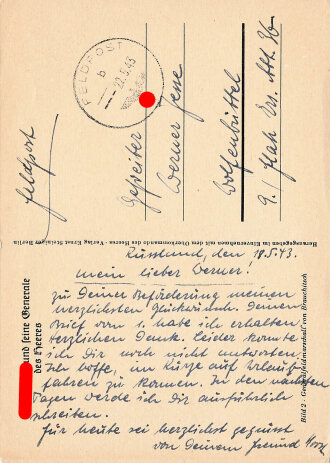 FELDPOST
b
22.5.43
Feldpost
Gefreiter
Werner Jesse
Wolfenbüttel
9./ Flak Ers. Abt. 36
Herausgegeben im Einvernehmen mit dem Oberkommando des Heeres · Verlag Ernst Steiniger Berlin
und seine Generale
des Heeres
Bild 2 - Generalfeldmarschall von Brauchitsch
Russland, den 18.5.43.
Mein lieber Werner!
Zu Deiner Beförderung meinen
herzlichsten Glückwunsch. Deinen
Brief vom 1. habe ich erhalten.
Herzlichen Dank. Leider konnte
ich Dir noch nicht antworten.
Ich hoffe, in Kürze auf Urlaub
fahren zu können. In den nächsten
Tagen werde ich Dir ausführlich
schreiben.
Für heute sei herzlichst gegrüsst
von Deinem Freund